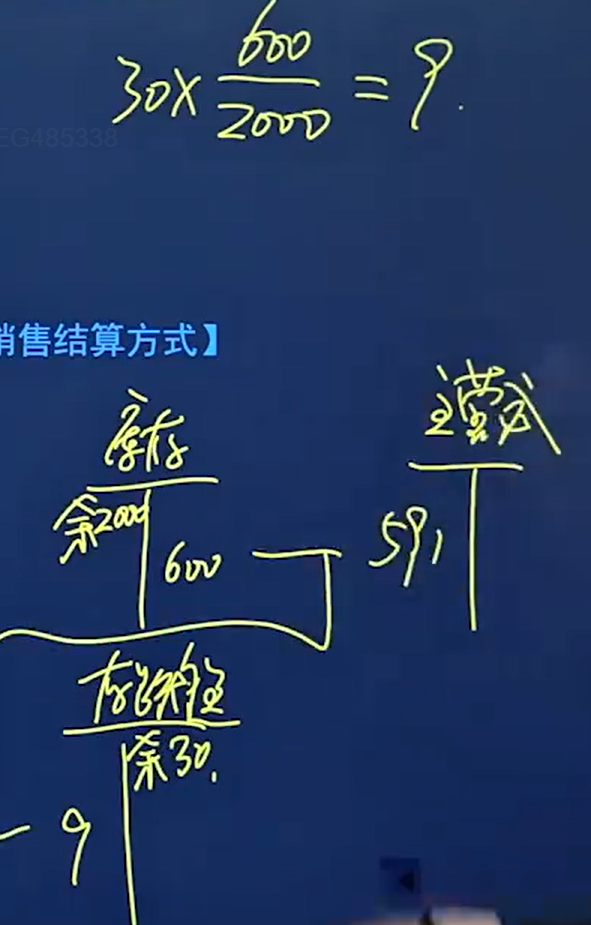 30×600/2000=9.
EG485338
销售结算方式】
库存
主营成
余2000
600
591
存货跌准
余30.
9